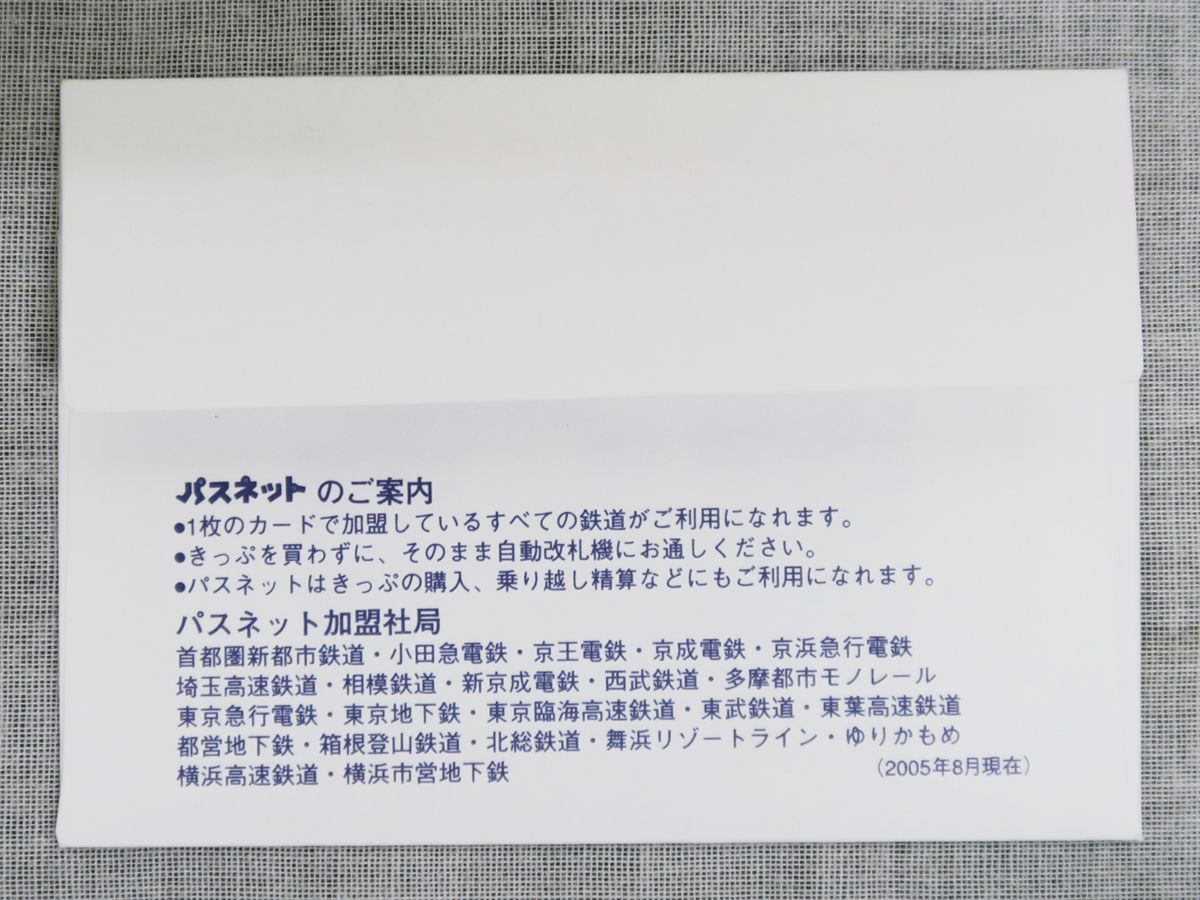 パスネット のご案内
●1枚のカードで加盟しているすべての鉄道がご利用になれます。
●きっぷを買わずに、そのまま自動改札機にお通しください。
●パスネットはきっぷの購入、乗り越し精算などにもご利用になれます。
パスネット加盟社局
首都圏新都市鉄道・小田急電鉄・京王電鉄・京成電鉄・京浜急行電鉄
埼玉高速鉄道・相模鉄道・新京成電鉄・西武鉄道・多摩都市モノレール
東京急行電鉄・東京地下鉄・東京臨海高速鉄道・東武鉄道・東葉高速鉄道
都営地下鉄・箱根登山鉄道・北総鉄道・舞浜リゾートライン・ゆりかもめ
横浜高速鉄道・横浜市営地下鉄 （2005年8月現在）